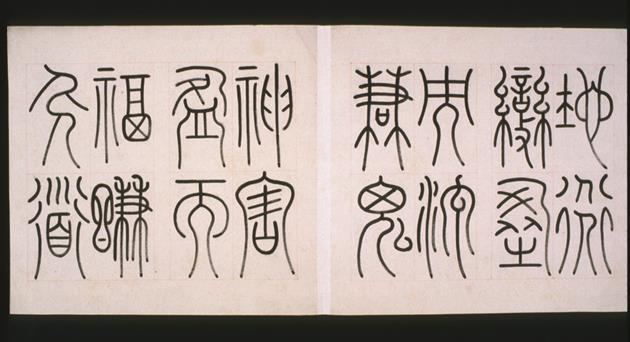 地道
變盈
而流
謙鬼
神害
盈而
福謙
人道